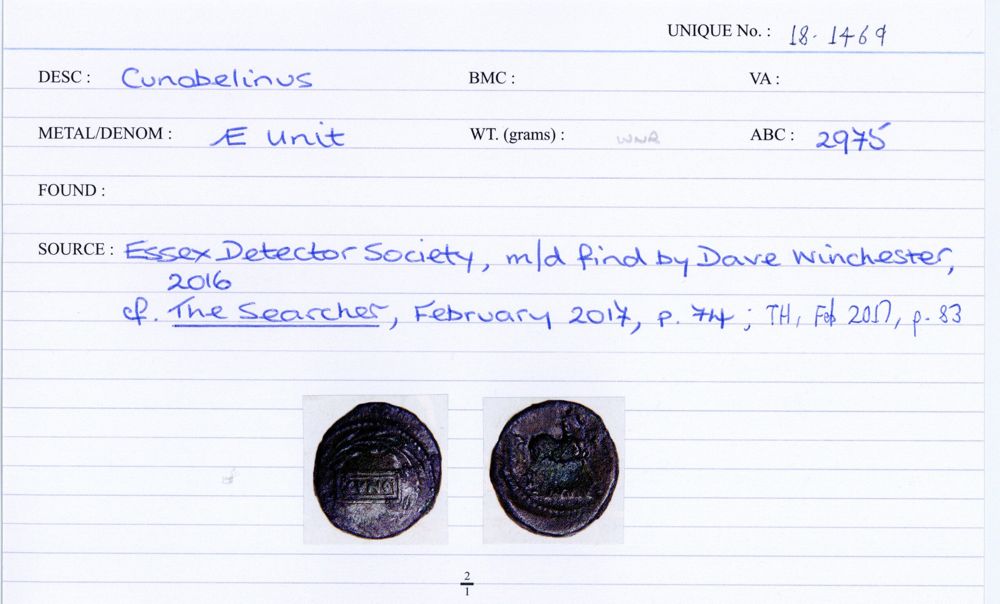 UNIQUE No. : 18. 1469
DESC : Cunobelinus BMC : VA :
METAL/DENOM : Æ Unit WT. (grams) : WNR ABC : 2975
FOUND :
SOURCE : Essex Detector Society, m/d find by Dave Winchester,
2016
cf. The Searcher, February 2017, p. 74 ; TH, Feb 2017, p. 83
2
1